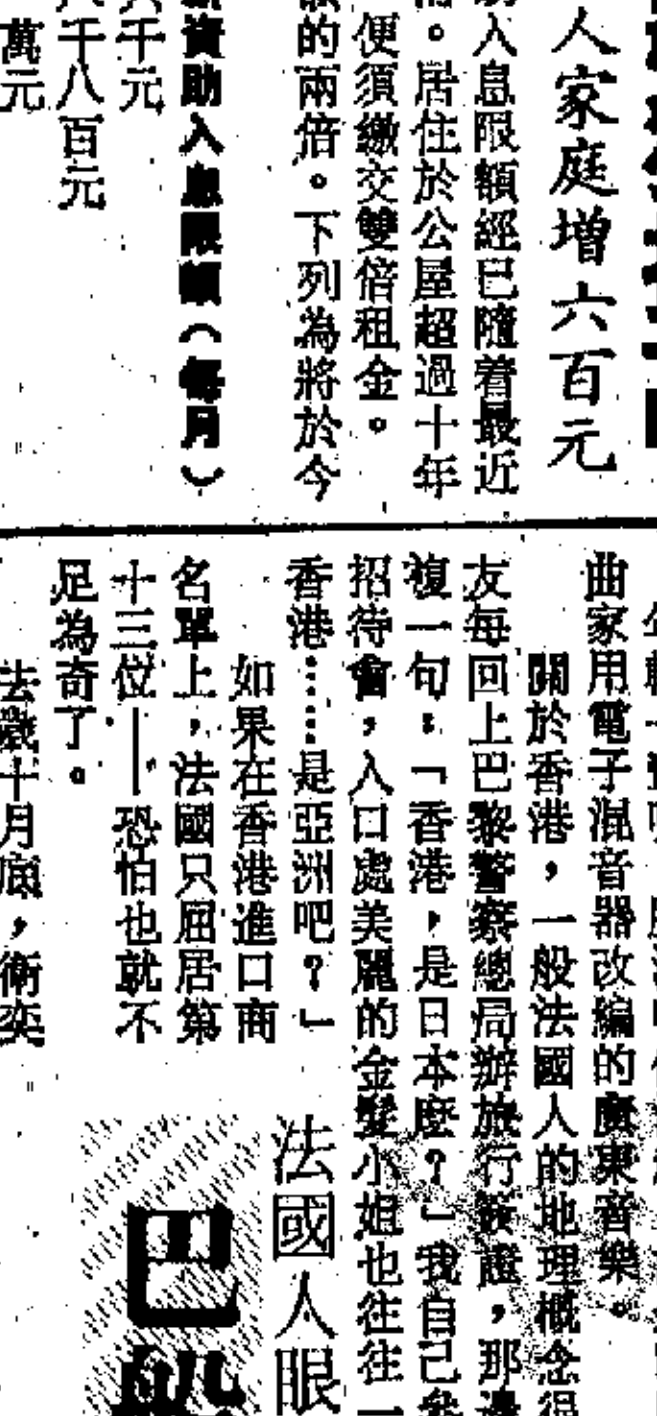 人家庭增六百元
入息限額經已隨着最近
。居住於公屋超過十年
便須繳交雙倍租金。
的兩倍。下列為將於今
資助入息限額（每月）
千元
千八百元
萬元
曲家用電子混音器改編的廣東音樂。
關於香港，一般法國人的地理概念
友每回上巴黎警察總局辦旅行簽證，那邊
複一句：「香港，是日本麼？」我自己
招待會，入口處美麗的金髮小姐也往往一
香港……是亞洲吧？」
如果在香港進口商
名單上，法國只屈居第
十三位——恐怕也就不
足為奇了。
去歲十月底，衛奕
法國人眼
巴